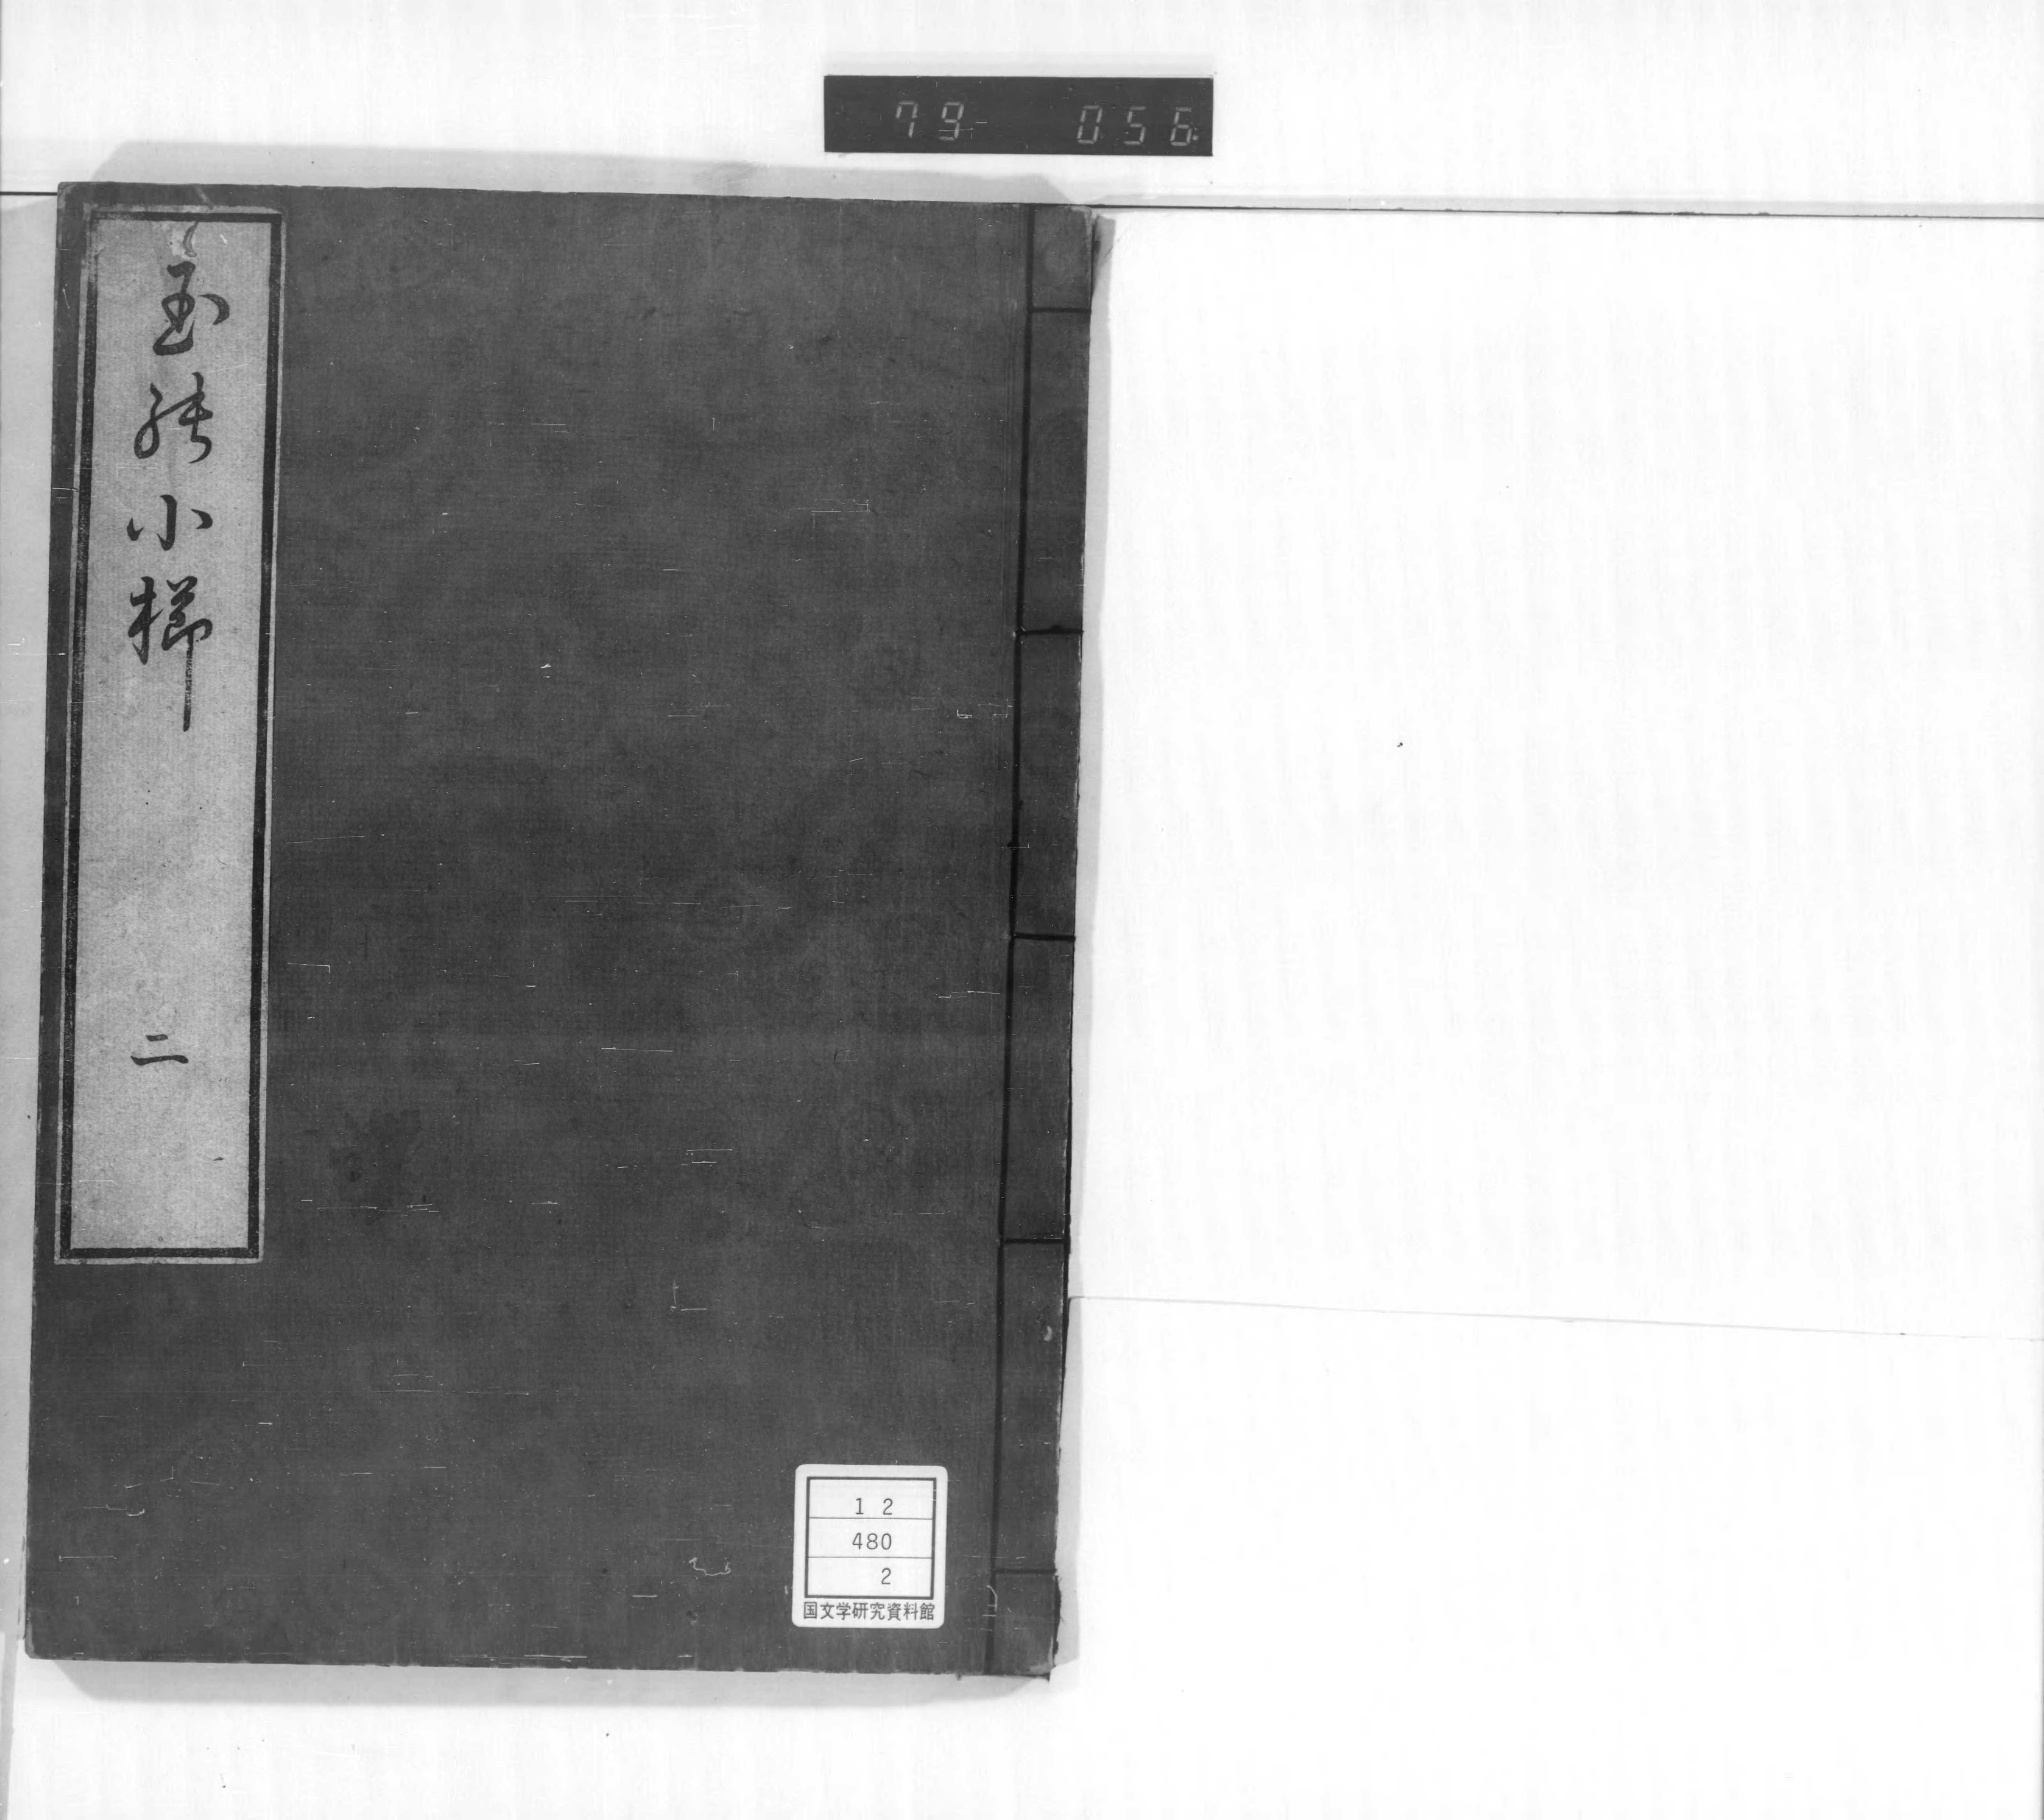 79 056
玉能小櫛
二
12
480
2
国文学研究資料館